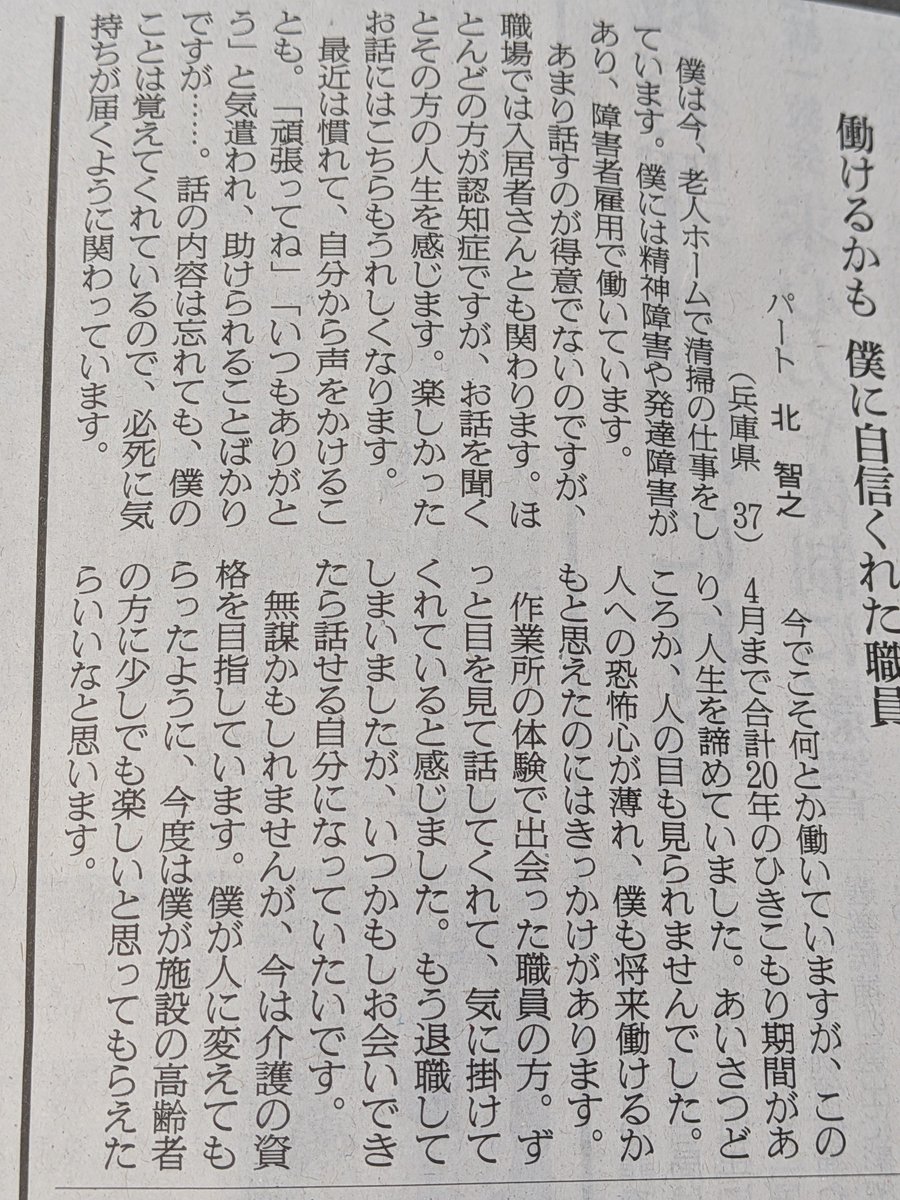 働けるかも 僕に自信くれた職員
パート 北 智之
（兵庫県 37）
僕は今、老人ホームで清掃の仕事をし
ています。僕には精神障害や発達障害が
あり、障害者雇用で働いています。
あまり話すのが得意でないのですが、
職場では入居者さんとも関わります。ほ
とんどの方が認知症ですが、お話を聞く
とその方の人生を感じます。楽しかった
お話にはこちらもうれしくなります。
最近は慣れて、自分から声をかけるこ
とも。「頑張ってね」「いつもありがと
う」と気遣われ、助けられることばかり
ですが……。話の内容は忘れても、僕の
ことは覚えてくれているので、必死に気
持ちが届くように関わっています。
今でこそ何とか働いていますが、この
4月まで合計20年のひきこもり期間があ
り、人生を諦めていました。あいさつど
ころか、人の目も見られませんでした。
人への恐怖心が薄れ、僕も将来働けるか
もと思えたのにはきっかけがあります。
作業所の体験で出会った職員の方。ず
っと目を見て話してくれて、気に掛けて
くれていると感じました。もう退職して
しまいましたが、いつかもしお会いでき
たら話せる自分になっていたいです。
無謀かもしれませんが、今は介護の資
格を目指しています。僕が人に変えても
らったように、今度は僕が施設の高齢者
の方に少しでも楽しいと思ってもらえた
らいいなと思います。